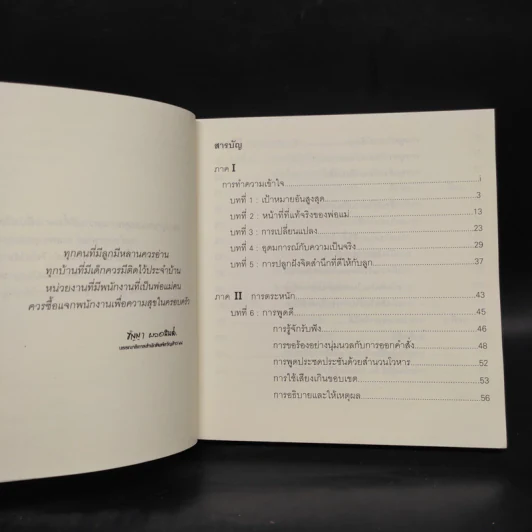 ทุกคนที่มีลูกมีหลานควรอ่าน
ทุกบ้านที่มีเด็กควรมีติดไว้ประจำบ้าน
หน่วยงานที่มีพนักงานที่เป็นพ่อแม่คน
ควรซื้อแจกพนักงานเพื่อความสุขในครอบครัว
สารบัญ
ภาค I
การทำความเข้าใจ
บทที่ 1 : เป้าหมายอันสูงสุด 3
บทที่ 2 : หน้าที่ที่แท้จริงของพ่อแม่ 13
บทที่ 3 : การเปลี่ยนแปลง 23
บทที่ 4 : อุดมการณ์กับความเป็นจริง 29
บทที่ 5 : การปลูกฝังจิตสำนึกที่ดีให้กับลูก 37
ภาค II การตระหนัก 43
บทที่ 6 : การพูดดี 45
การรู้จักรับฟัง 46
การขอร้องอย่างนุ่มนวลกับการออกคำสั่ง 48
การพูดประชดประชันด้วยสำนวนโวหาร 52
การใช้เสียงเกินขอบเขต 53
การอธิบายและให้เหตุผล 56